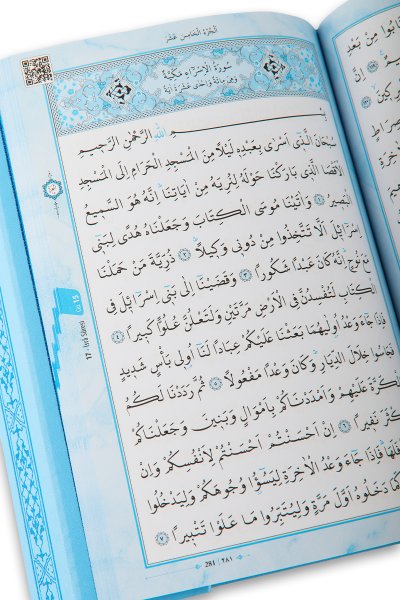 اَلْجُزْءُ الْخَامِسُ عَشَرَ
سُورَةُ الْاِسْرَاءِ مَكِّيَّةٌ
وَهِيَ مِائَةٌ وَاِحْدٰى عَشْرَةَ اٰيَةً
بِسْمِ اللّٰهِ الرَّحْمٰنِ الرَّحِيمِ
سُبْحَانَ الَّذٖٓى اَسْرٰى بِعَبْدِهٖ لَيْلًا مِنَ الْمَسْجِدِ الْحَرَامِ اِلَى الْمَسْجِدِ
الْاَقْصَا الَّذٖى بَارَكْنَا حَوْلَهُ لِنُرِيَهُ مِنْ اٰيَاتِنَا اِنَّهُ هُوَ السَّمٖيعُ
الْبَصٖيرُ ﴿١﴾ وَاٰتَيْنَا مُوسَى الْكِتَابَ وَجَعَلْنَاهُ هُدًى لِبَنٖٓى
اِسْرَٓائٖلَ اَلَّا تَتَّخِذُوا مِنْ دُونٖى وَكٖيلًا ﴿٢﴾ ذُرِّيَّةَ مَنْ حَمَلْنَا
مَعَ نُوحٍ اِنَّهُ كَانَ عَبْدًا شَكُورًا ﴿٣﴾ وَقَضَيْنَٓا اِلٰى بَنٖٓى اِسْرَٓائٖلَ فِى
الْكِتَابِ لَتُفْسِدُنَّ فِى الْاَرْضِ مَرَّتَيْنِ وَلَتَعْلُنَّ عُلُوًّا كَبٖيرًا ﴿٤﴾
فَاِذَا جَٓاءَ وَعْدُ اُولٰيهُمَا بَعَثْنَا عَلَيْكُمْ عِبَادًا لَنَٓا اُولٖى بَاْسٍ شَدٖيدٍ
فَجَاسُوا خِلَالَ الدِّيَارِ وَكَانَ وَعْدًا مَفْعُولًا ﴿٥﴾ ثُمَّ رَدَدْنَا لَكُمُ
الْكَرَّةَ عَلَيْهِمْ وَاَمْدَدْنَاكُمْ بِاَمْوَالٍ وَبَنٖينَ وَجَعَلْنَاكُمْ
اَكْثَرَ نَفٖيرًا ﴿٦﴾ اِنْ اَحْسَنْتُمْ اَحْسَنْتُمْ لِاَنْفُسِكُمْ وَاِنْ
فَلَهَا فَاِذَا جَٓاءَ وَعْدُ الْاٰخِرَةِ لِيَسُٓؤُا وُجُوهَكُمْ وَلِيَدْخُلُوا
كَمَا دَخَلُوهُ اَوَّلَ مَرَّةٍ وَلِيُتَبِّرُوا مَا عَلَوْا تَتْبٖيرًا ﴿٧﴾
281 | ٢٨١
Cüz 15
17 - İsrâ Sûresi